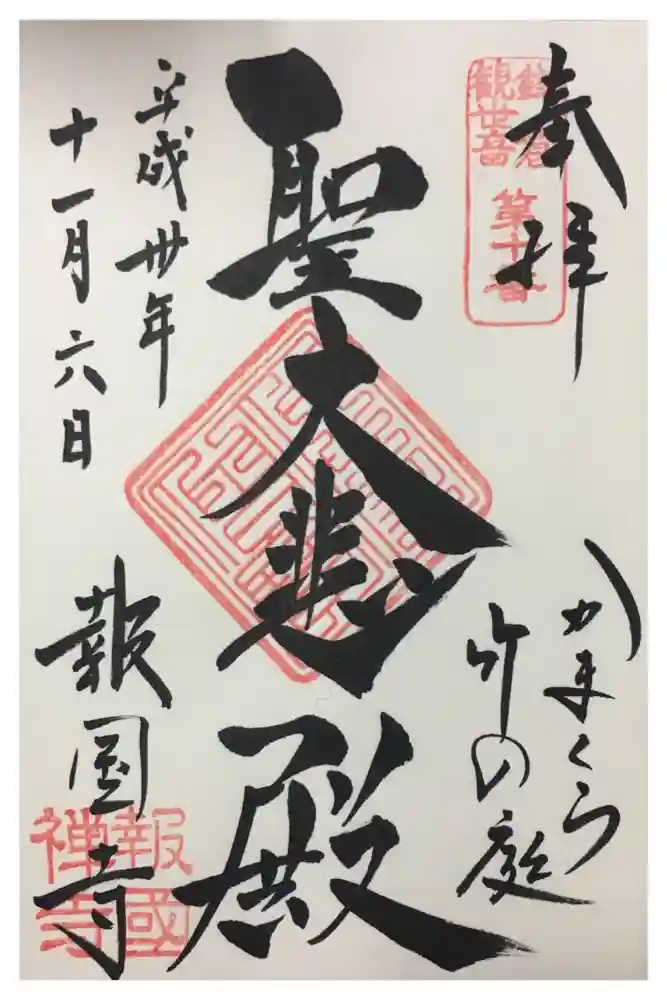 奉拝
鎌倉
観世音
第十番
かまくら
竹の庭
聖大悲殿
平成卅年
十一月六日
報国寺
報國
禅寺